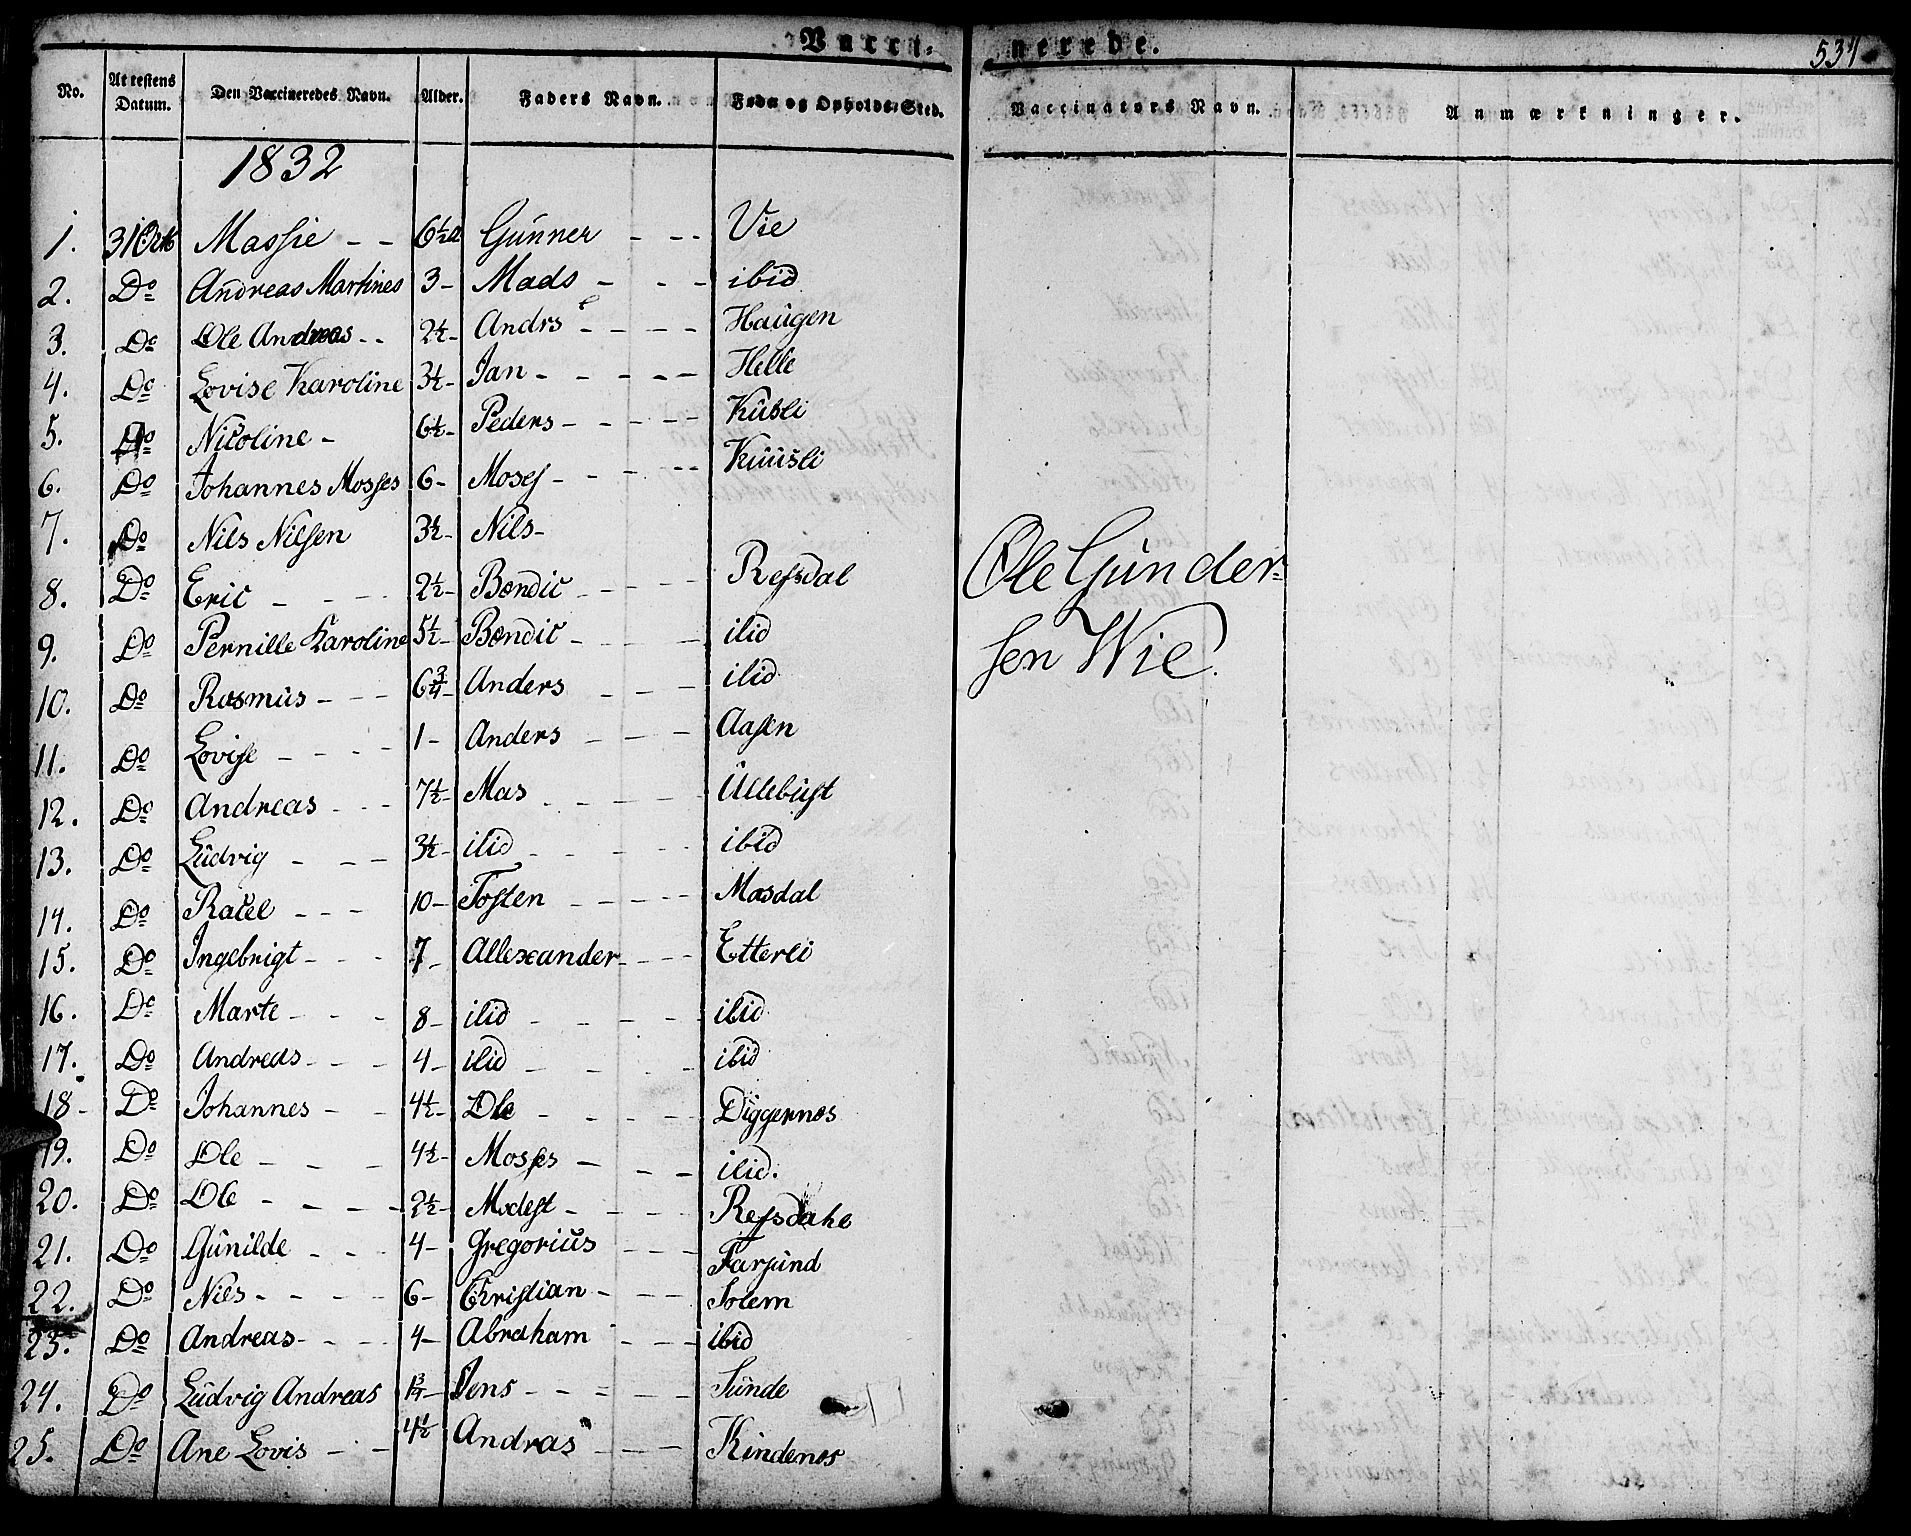 Vacci- nerede. 534
No. Attestens Datum. Den Vaccineredes Navn. Alder. Faders Navn. Føde og Opholds-Sted. Vaccinateurs Navn. Anmærkninger.
1832
1. 31 Octb Massie - - 6½a Gunner - - - Vie
2. Do Andreas Martines 3 - Mads - - - ibid
3. Do Ole Andreas - - 2½ - Andrs - - - - Haugen
4. Do Lovise Karoline 3½ - Jan - - - - - Helle
5. Do Nicoline - 6½ - Peders - - - - Kusli
6. Do Johannes Mosses 6 - Moses - - - - Kuusli
7. Do Nils Nilsen 3½ - Nils -
8. Do Eric - - - 2½ - Bendic - - - Refsdal
9. Do Pernille Karoline 5½ - Bendic - - - ibid
10. Do Rasmus - - - 6¾ - Anders - - - ibid
11. Do Lovise - - - 1 - Anders - - - Aasen
12. Do Andreas - - - 7½ - Mas - - - - Ullebust
13. Do Ludvig - - - 3½ - ibid - - - - ibid
14. Do Racel - - - 10 - Tosten - - - - - Masdal
15. Do Ingebrigt - - - 7 - Allexander - - - Etterli
16. Do Marte - - - 8 - ibid - - - - ibid
17. Do Andreas - - - 4 - ibid - - - - ibid
18 - Do Johannes - - 4½ - Ole - - - - Diggernes
19. Do Ole - - - 4½ - Mosses - - - ibid.
20. Do Ole - - - - 2½ - Modest - - - - Refsdahl
21. Do Gunilde - - - 4 - Gregorius - - - Farsund
22. Do Nils - - - - 6 - Christian - - - Solem
23. Do Andreas - - - 4 - Abraham - - - ibid
24. Do Ludvig Andreas 1¾ - Jens - - - - - Sunde
25. Do Ane Lovis - - 4½ Andras - - - Kindenes
Ole Gunder-
sen Wie.